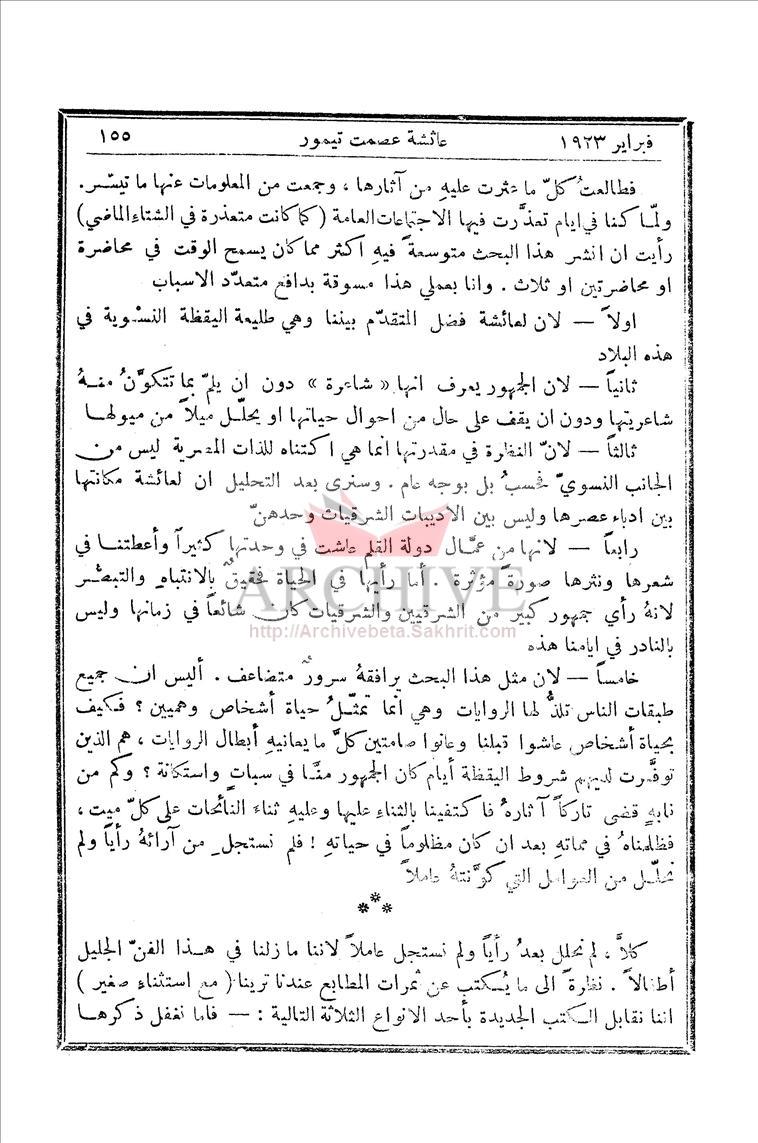 فبراير ١٩٢٣ عائشة عصمت تيمور ١٥٥
فطالعتُ كلّ ما عثرت عليهِ من آثارها ، وجمعت من المعلومات عنها ما تيسّر.
ولمّا كنا في ايام تعذَّرت فيها الاجتماعات العامة (كما كانت متعذرة في الشتاء الماضي)
رأيت ان انشر هذا البحث متوسعةً فيهِ اكثر مما كان يسمح الوقت في محاضرة
او محاضرتين او ثلاث . وانا بعملي هذا مسوقة بدافع متعدّد الاسباب
اولاً — لان لعائشة فضل المتقدّم بيننا وهي طليعة اليقظة النسْوية في
هذه البلاد
ثانياً — لان الجمهور يعرف انها « شاعرة » دون ان يلمّ بما تتكوَّنُ منهُ
شاعريتها ودون ان يقف على حال من احوال حياتها او يحلّل ميلاً من ميولها
ثالثاً — لانّ النظرة في مقدرتها انما هي اكتناه للذات المصرية ليس من
الجانب النسويّ فحسبُ بل بوجه عام . وسنرى بعد التحليل ان لعائشة مكانتها
بين ادباء عصرها وليس بين الاديبات الشرقيات وحدهنّ
رابعاً — لانها من عمَّال دولة القلم عاشت في وحدتها كثيراً وأعطتنا في
شعرها ونثرها صورةً مؤثرة . أما رأيها في الحياة فحقيقٌ بالانتباهِ والتبصُّر
لانهُ رأي جمهور كبير من الشرقيين والشرقيات كان شائعاً في زمانها وليس
بالنادر في ايامنا هذه
خامساً — لان مثل هذا البحث يرافقهُ سرورٌ متضاعف . أليس ان جميع
طبقات الناس تلذُّ لها الروايات وهي انما تمثّلُ حياة أشخاص وهميين ؟ فكيف
بحياة أشخاص عاشوا قبلنا وعانوا صامتين كلَّ ما يعانيهِ أبطال الروايات ، هم الذين
توفَّرت لديهم شروط اليقظة أيام كان الجمهور منَّا في سباتٍ واستكانة ؟ وكم من
نابهٍ قضى تاركاً آثارهُ فاكتفينا بالثناء عليها وعليهِ ثناءَ النائحات على كلّ ميت ،
فظلمناهُ في مماتهِ بعد ان كان مظلوماً في حياتهِ ! فلم نستجلِ من آرائهُ رأياً ولم
نحلّل من العوامل التي كوَّنتهُ عاملاً
***
كلاَّ ، لم نحلل بعدُ رأياً ولم نستجل عاملاً لاننا ما زلنا في هذا الفنّ الجليل
أطفالاً . نظرةً الى ما يُكتب عن ثمرات المطابع عندنا ترينا ( مع استثناءٍ صغير )
اننا نقابل الكتب الجديدة بأحد الانواع الثلاثة التالية : — فاما نغفل ذكرها
ARCHIVE
http://Archivebeta.Sakhrit.com